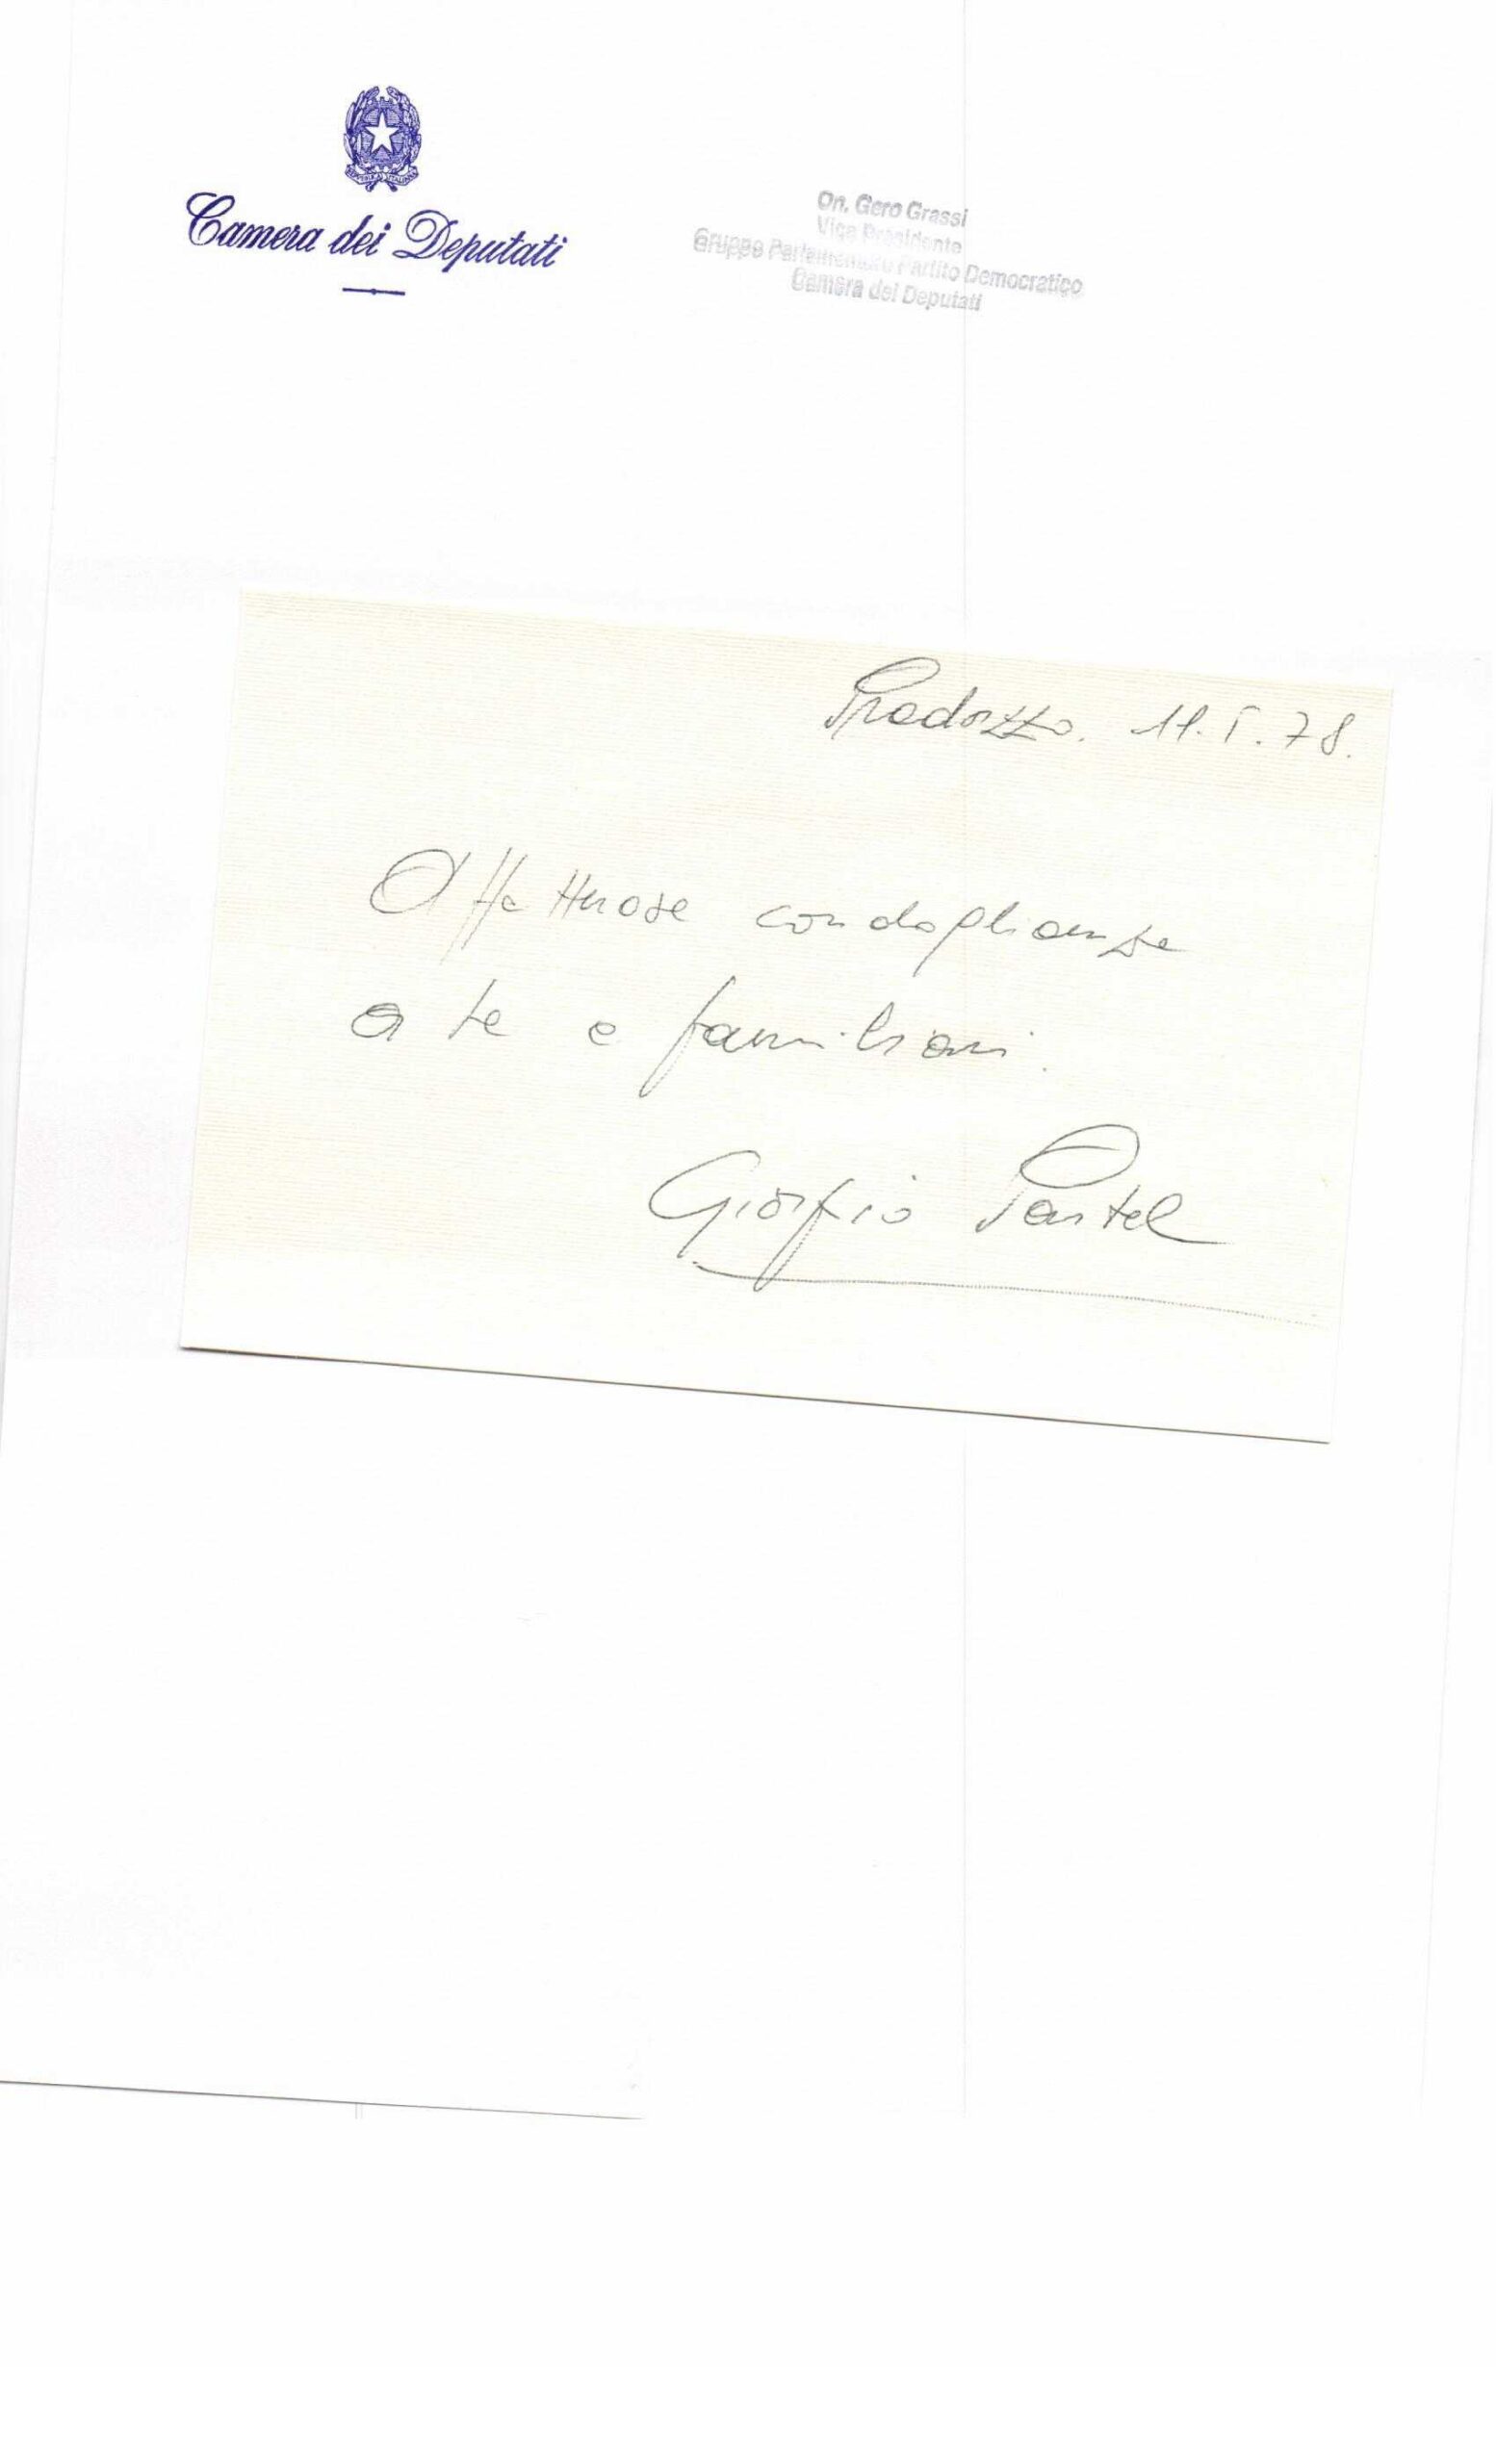 REPUBBLICA ITALIANA
Camera dei Deputati
On. Gero Grassi
Vice Presidente
Gruppo Parlamentare Partito Democratico
Camera dei Deputati
Predazzo. 11.5.78.
Affettuose condoglianze
a te e familiari.
Giorgio